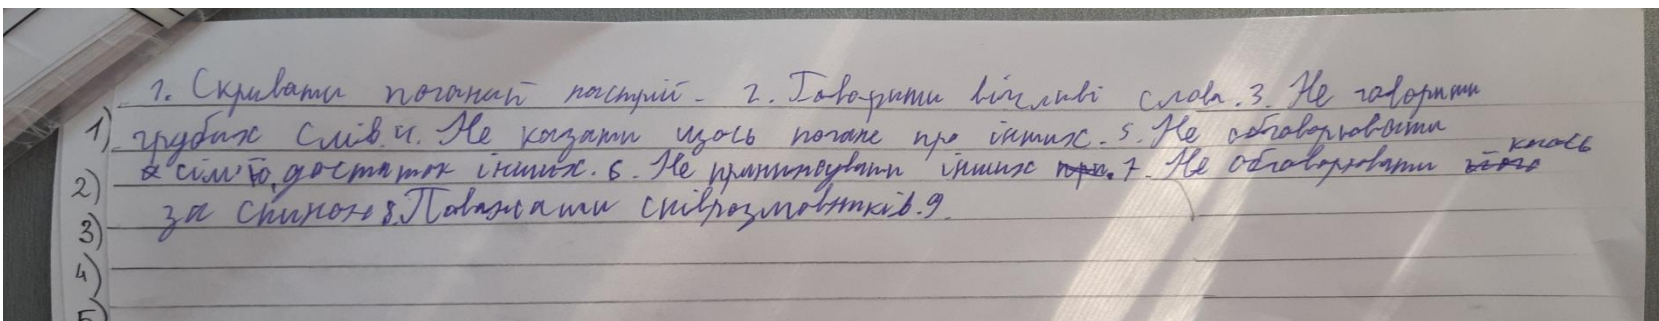 1. Скривати поганий настрій. 2. Говорити вічливі слова. 3. Не говорити
1) грубих слів. 4. Не казати щось погане про інших. 5. Не обговорювати
2) сім'ю, достаток інших. 6. Не принижувати інших 7. Не обговорювати когось
3) за спиною 8. Поважати співрозмовників. 9.
4)
5)